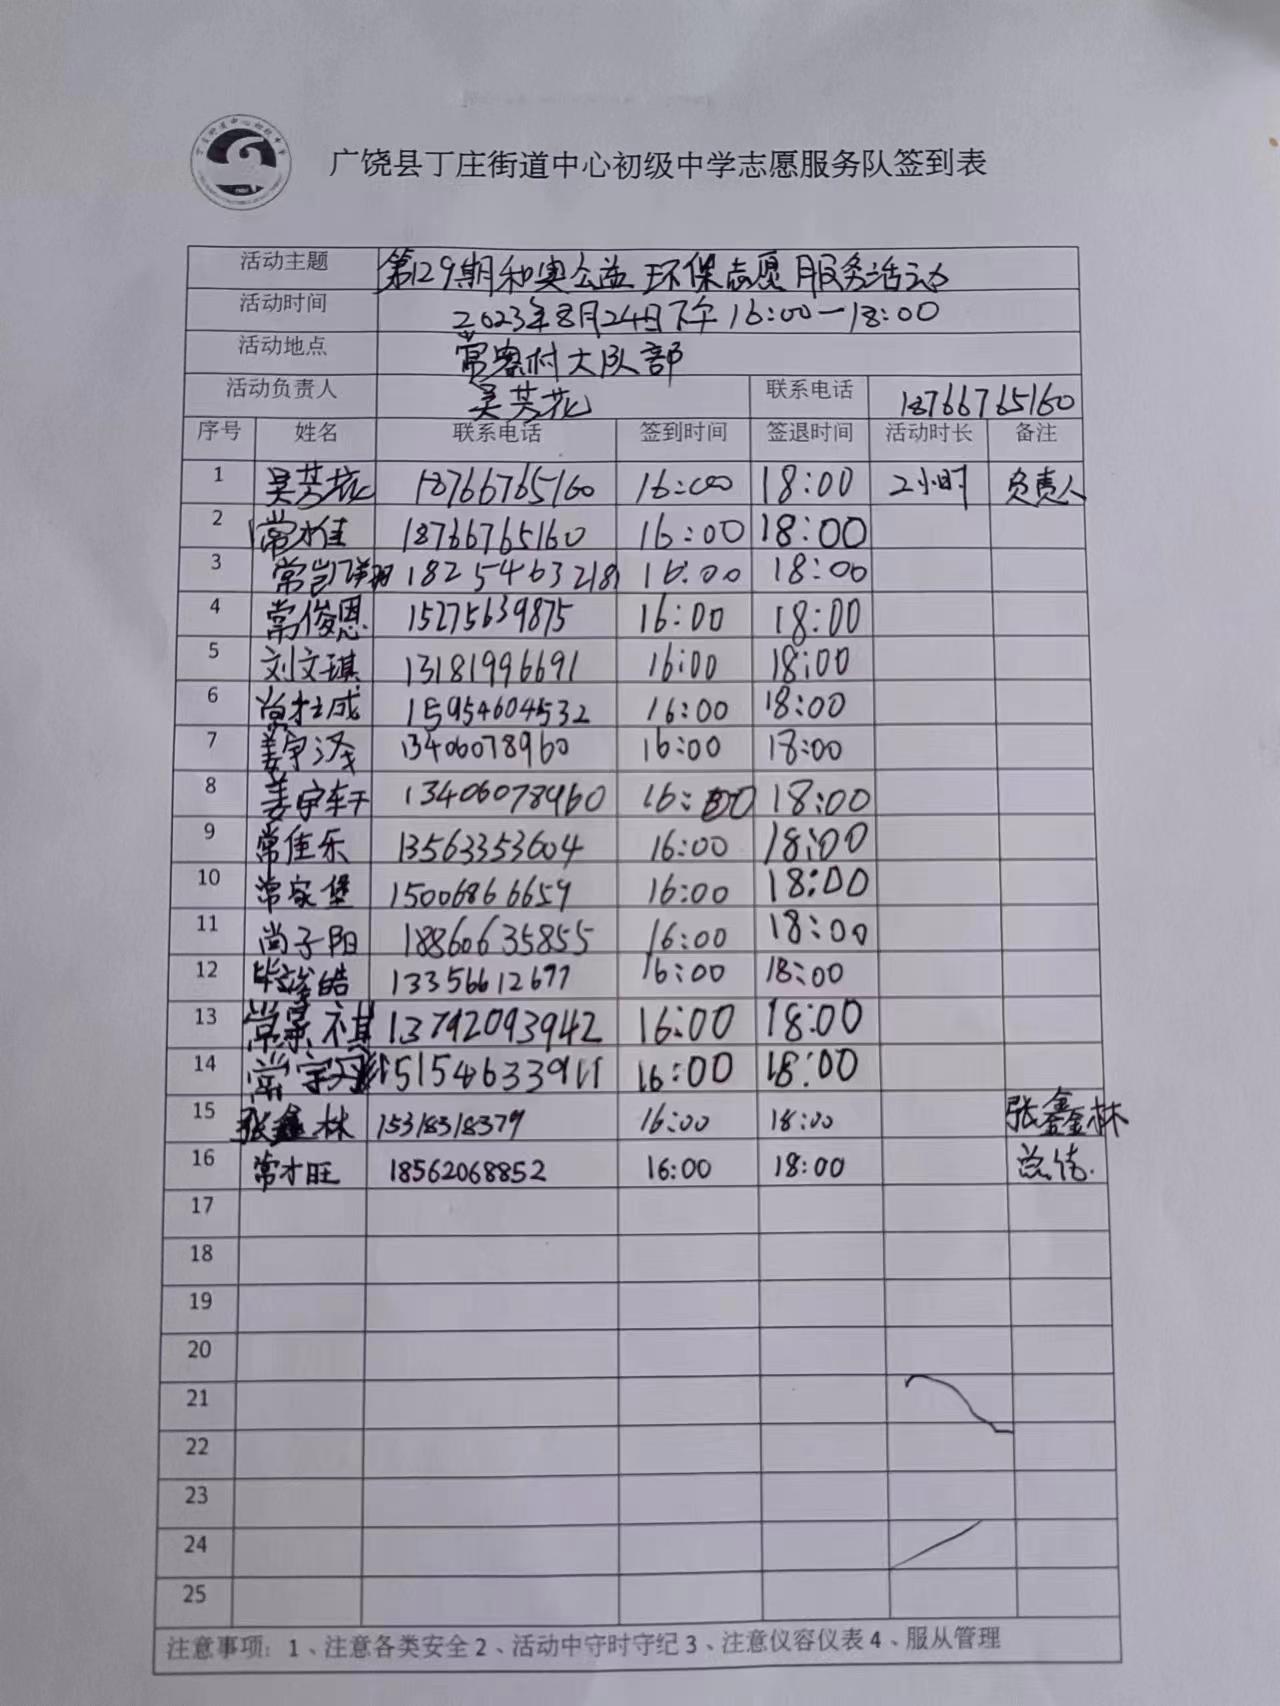 广饶县丁庄街道中心初级中学志愿服务队签到表
活动主题 第129期和奥公益环保志愿服务活动
活动时间 2023年8月24日下午16:00—18:00
活动地点 常寨村大队部
活动负责人 吴芳花 联系电话 18766765160
序号 姓名 联系电话 签到时间 签退时间 活动时长 备注
1 吴芳花 18766765160 16:00 18:00 2小时 负责人
2 常才佳 18766765160 16:00 18:00
3 常凯翔 18254632181 16:00 18:00
4 常俊恩 15275639875 16:00 18:00
5 刘文琪 13181996691 16:00 18:00
6 常杜成 15954604532 16:00 18:00
7 姜宇泽 13406078960 16:00 18:00
8 姜宇轩 13406078960 16:00 18:00
9 常佳乐 13563353604 16:00 18:00
10 常家堡 15006866659 16:00 18:00
11 尚子阳 18860635855 16:00 18:00
12 皓 13356612677 16:00 18:00
13 常景祺 13792093942 16:00 18:00
14 常宇 15154633911 16:00 18:00
15 张鑫林 15318318379 16:00 18:00 张鑫林
16 常才旺 18562068852 16:00 18:00 总结.
17
18
19
20
21
22
23
24
25
注意事项: 1、注意各类安全 2、活动中守时守纪 3、注意仪容仪表 4、服从管理